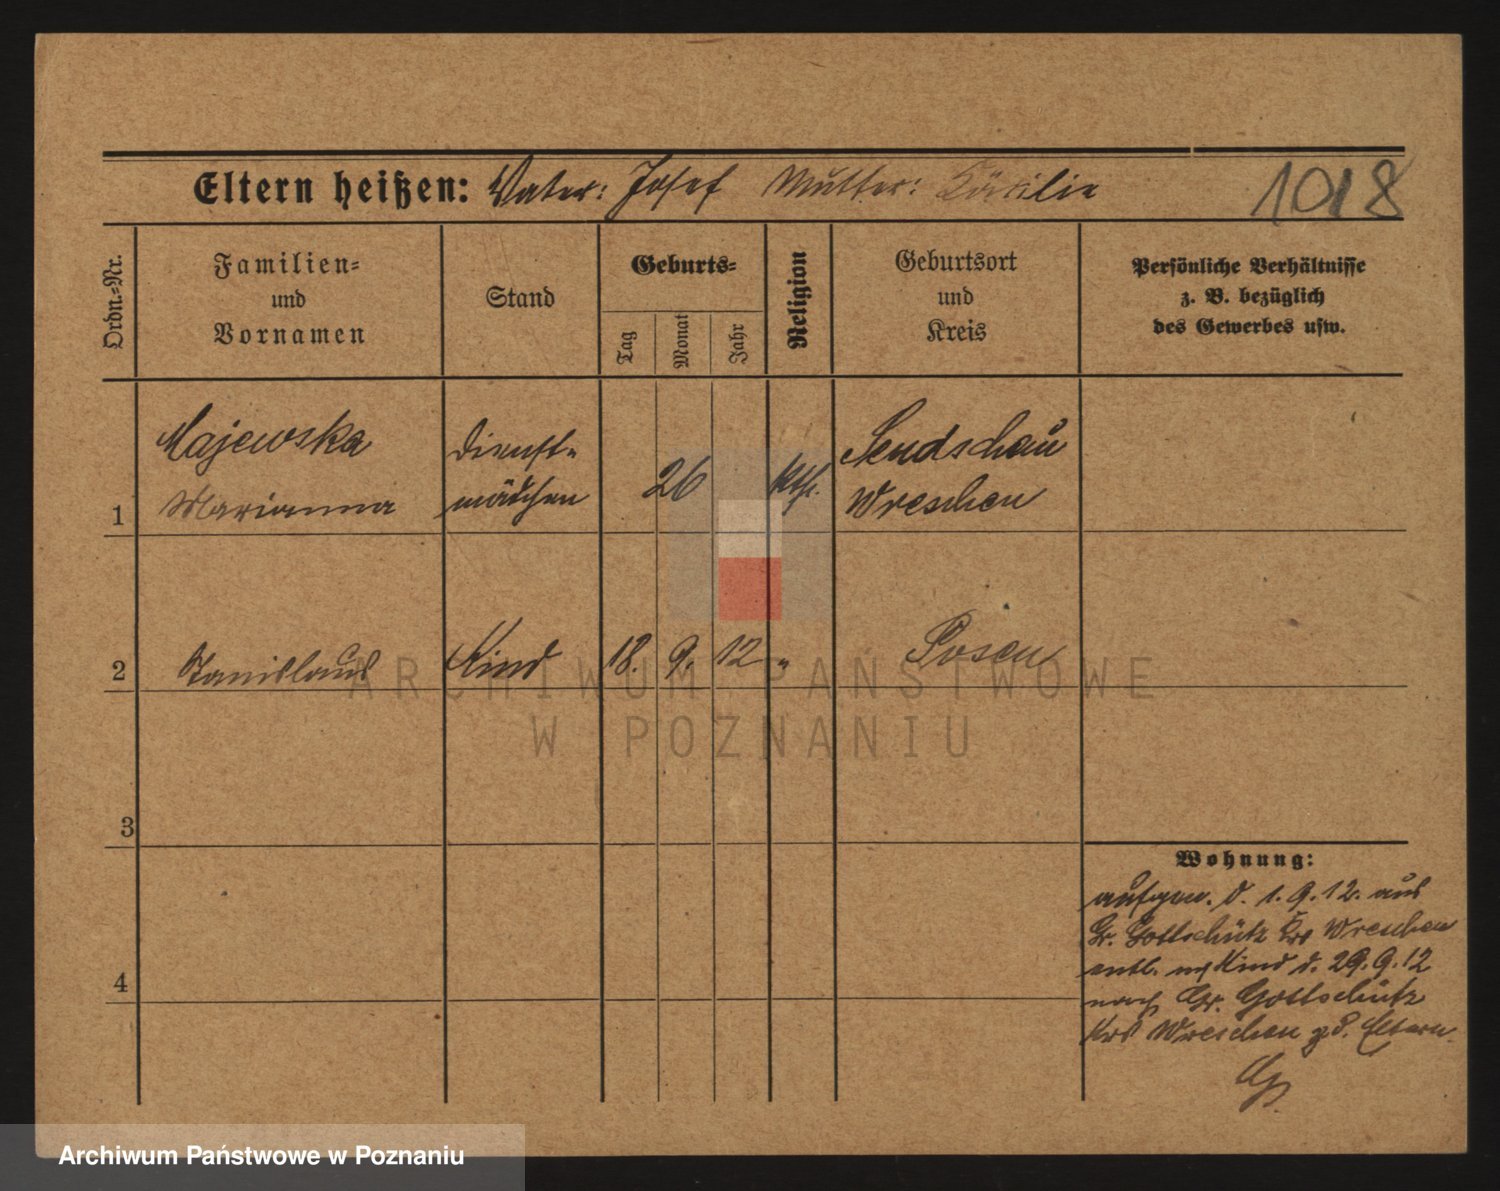 Eltern heißen: Vater: Josef Mutter: Cäcilie
1018
Ordn.-Nr.
Familien-
und
Vornamen
Stand
Geburts-
Tag
Monat
Jahr
Religion
Geburtsort
und
Kreis
Persönliche Verhältnisse
z. B. bezüglich
des Gewerbes usw.
1
Majewska
Marianna
Dienst-
mädchen
26
kth.
Sendschau
Wreschen
2
Stanislaus
Kind
18.
9.
12
"
Posen
3
4
Wohnung:
aufgen. d. 1.9.12. aus
Gr. Gottschütz Krs Wreschen
entl. m Kind d. 29.9.12
nach Gr. Gottschütz
Krs Wreschen z d. Eltern.
ARCHIWUM PAŃSTWOWE
W POZNANIU
Archiwum Państwowe w Poznaniu